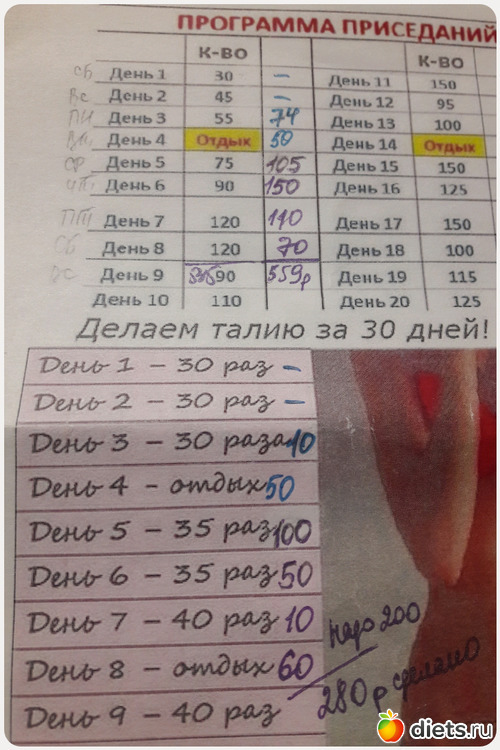 ПРОГРАММА ПРИСЕДАНИЙ
К-ВО К-ВО
Сб День 1 30 – День 11 150
Вс День 2 45 – День 12 95
Пн День 3 55 74 День 13 100
Вт День 4 Отдых 50 День 14 Отдых
Ср День 5 75 105 День 15 150
Чт День 6 90 150 День 16 125
Пт День 7 120 110 День 17 150
Сб День 8 120 70 День 18 100
Вс День 9 90 559р День 19 115
День 10 110 День 20 125
Делаем талию за 30 дней!
День 1 – 30 раз –
День 2 – 30 раз –
День 3 – 30 раза 10
День 4 – отдых 50
День 5 – 35 раз 100
День 6 – 35 раз 50
День 7 – 40 раз 10 надо 200
День 8 – отдых 60 280 р сделано
День 9 – 40 раз
diets.ru